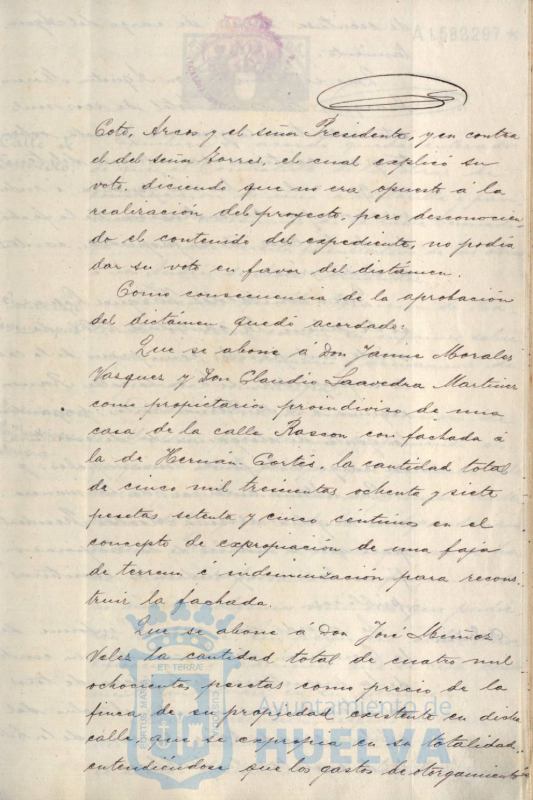 A1588297*
Coto, Arcos y el señor Presidente, y en contra
el del señor Torres, el cual explicó su
voto, diciendo que no era opuesto á la
realización del proyecto, pero desconocien-
do el contenido del expediente, no podía
dar su voto en favor del dictámen.
Como consecuencia de la aprobación
del dictámen quedó acordado:
Que se abone á Don Jaime Morales
Vasquez y Don Claudio Saavedra Martinez
como propietarios proindiviso de una
casa de la calle Rascon con fachada á
la de Hernán-Cortés, la cantidad total
de cinco mil trescientas ochenta y siete
pesetas setenta y cinco céntimos en el
concepto de expropiación de una faja
de terreno é indemnización para recons-
truir la fachada.
Que se abone á Don José Muñoz
Velez la cantidad total de cuatro mil
ochocientas pesetas como precio de la
finca de su propiedad existente en dicha
calle que se expropia en su totalidad,
entendiéndose que los gastos de otorgamiento
Ayuntamiento de
HUELVA